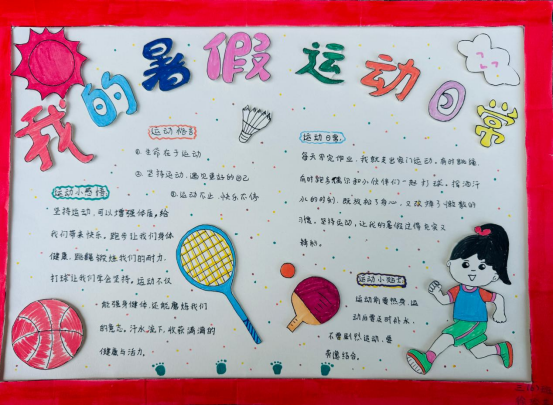 我的暑假运动日常
运动格言
①生命在于运动
②坚持运动,遇见更好的自己
③运动不止 快乐不停
运动小感悟
坚持运动,可以增强体质,给
我们带来快乐。跑步让我们身体
健康,跳绳锻炼我们的耐力,
打球让我们学会坚持。运动不仅
能强身健体,还能磨炼我们
的意志。汗水流下,收获满满的
健康与活力。
运动日常
每天写完作业,我就走出家门运动。有时跳绳,
有时跑步,偶尔和小伙伴们一起打球。挥洒汗
水的时刻,既放松了身心,又改掉了懒散的
习惯。坚持运动,让我的暑假过得充实又
精彩。
运动小贴士
运动前要热身,运
动后要及时补水
不要剧烈运动,要
劳逸结合。